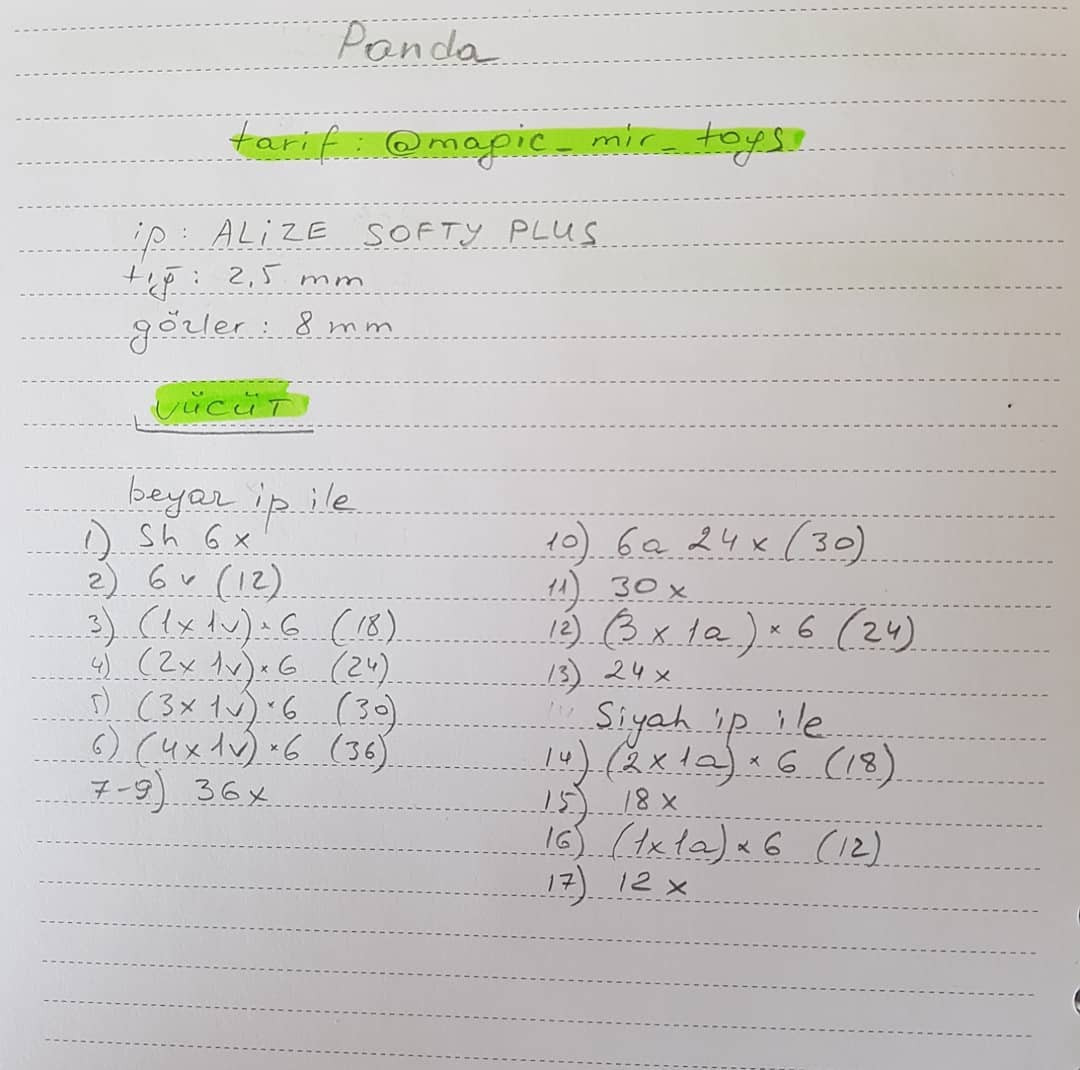 Panda
tarif: @mapic_mir_toys
ip: ALİZE SOFTY PLUS
tığ: 2,5 mm
gözler: 8 mm
VÜCÜT
beyaz ip ile
1) Sh 6x
2) 6v (12)
3) (1x1v)*6 (18)
4) (2x 1v)*6 (24)
5) (3x 1v)*6 (30)
6) (4x1v)*6 (36)
7-9) 36x
10) 6a 24x (30)
11) 30x
12) (3x1a)*6 (24)
13) 24x
Siyah ip ile
14) (2x1a)*6 (18)
15) 18x
16) (1x1a)*6 (12)
17) 12x